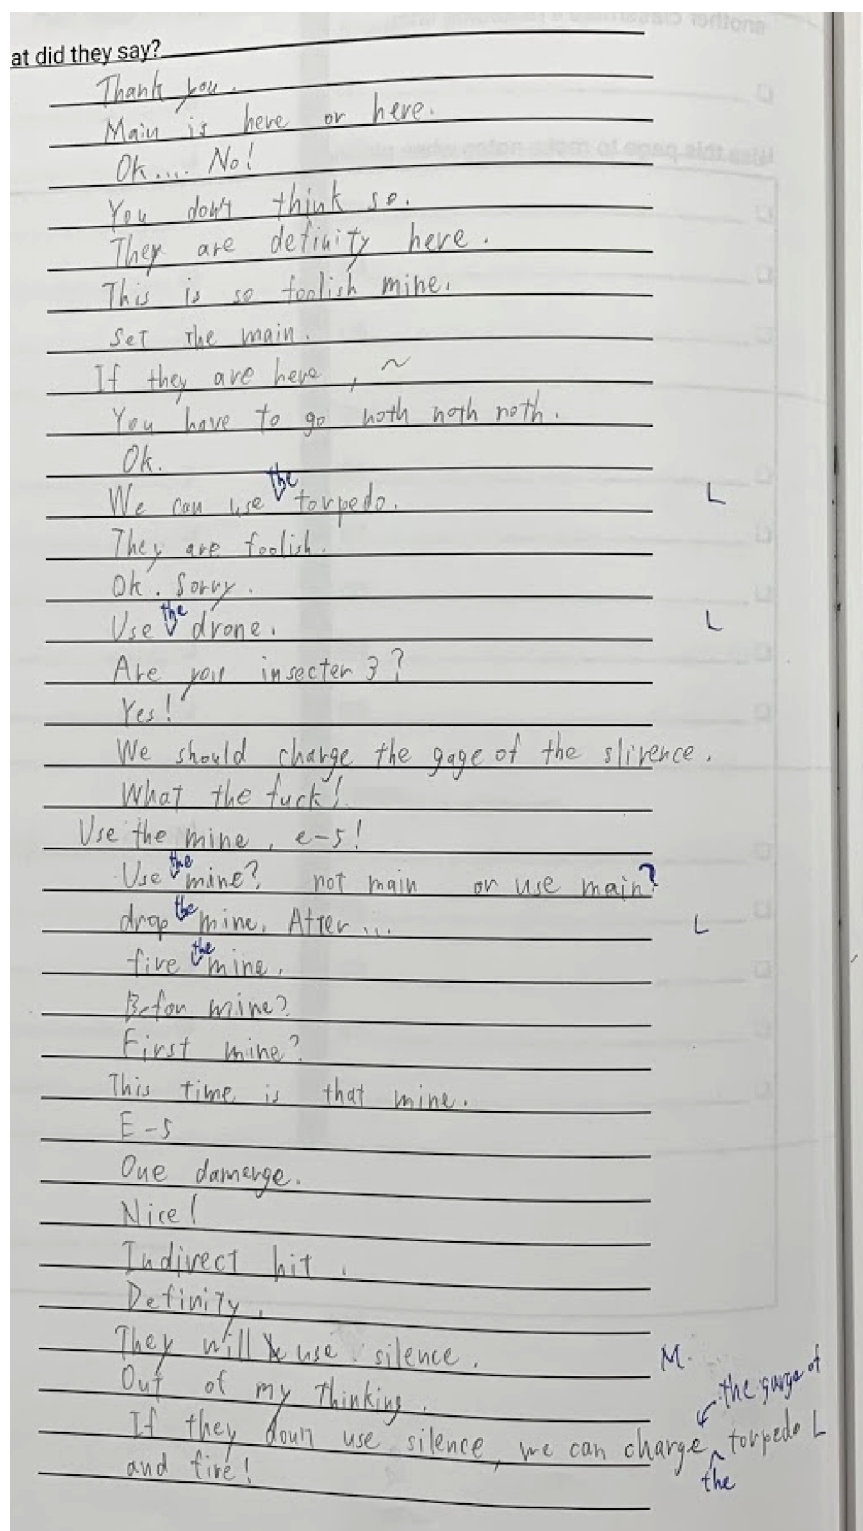 at did they say?
Thank you.
Main is here or here.
Ok.... No!
You don't think so.
They are definity here.
This is so foolish mine.
Set the main.
If they are here, ~
You have to go noth noth noth.
Ok.
We can use the torpedo. L
They are foolish.
Ok. Sorry.
Use the drone. L
Are you in secter 3?
Yes!
We should charge the gage of the slirence.
What the fuck!
Use the mine, e-5!
Use the mine? not main or use main?
drop the mine. After... L
fire the mine.
mine?
First mine?
This time is that mine.
E-5
One damerge.
Nice!
Indirect hit.
Definity.
They will use silence. M.
Out of my thinking.
the gauge of
If they use silence, we can charge the torpedo L
and fire!